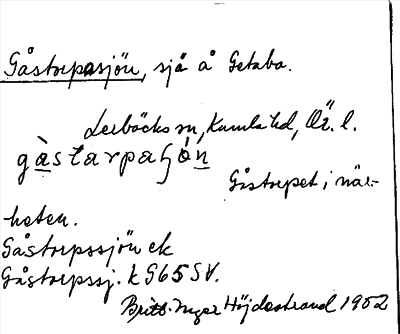 Gåstorpasjön, sjö å Getaba.
Lerbäcks sn, Kumla hd, Ör. l.
gàstarpaʃǿn
Gåstorpet i när-
heten.
Gåstorpssjön ek
Gåstorpssj. k G65SV.
Britt-Inger Höjdestrand 1952